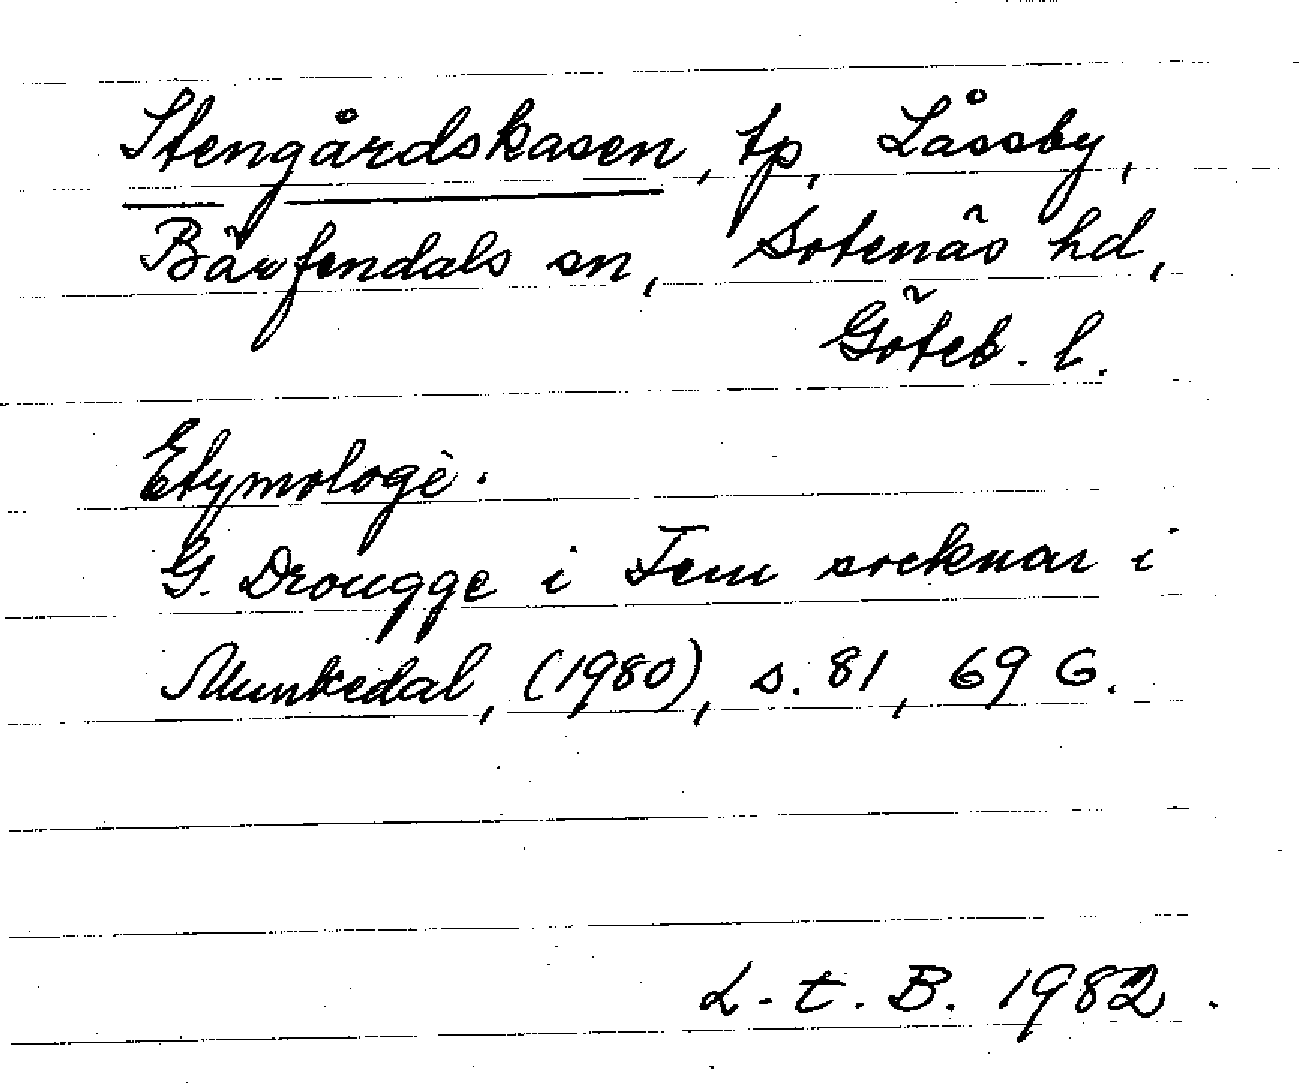 Stengårdskasen, tp, Låssby,
Bärfendals sn, Sotenäs hd,
Göteb. l.
Etymologi.
G. Drougge i Fem socknar i
Munkedal, (1980), s. 81, 69 G.
L. t. B. 1982.